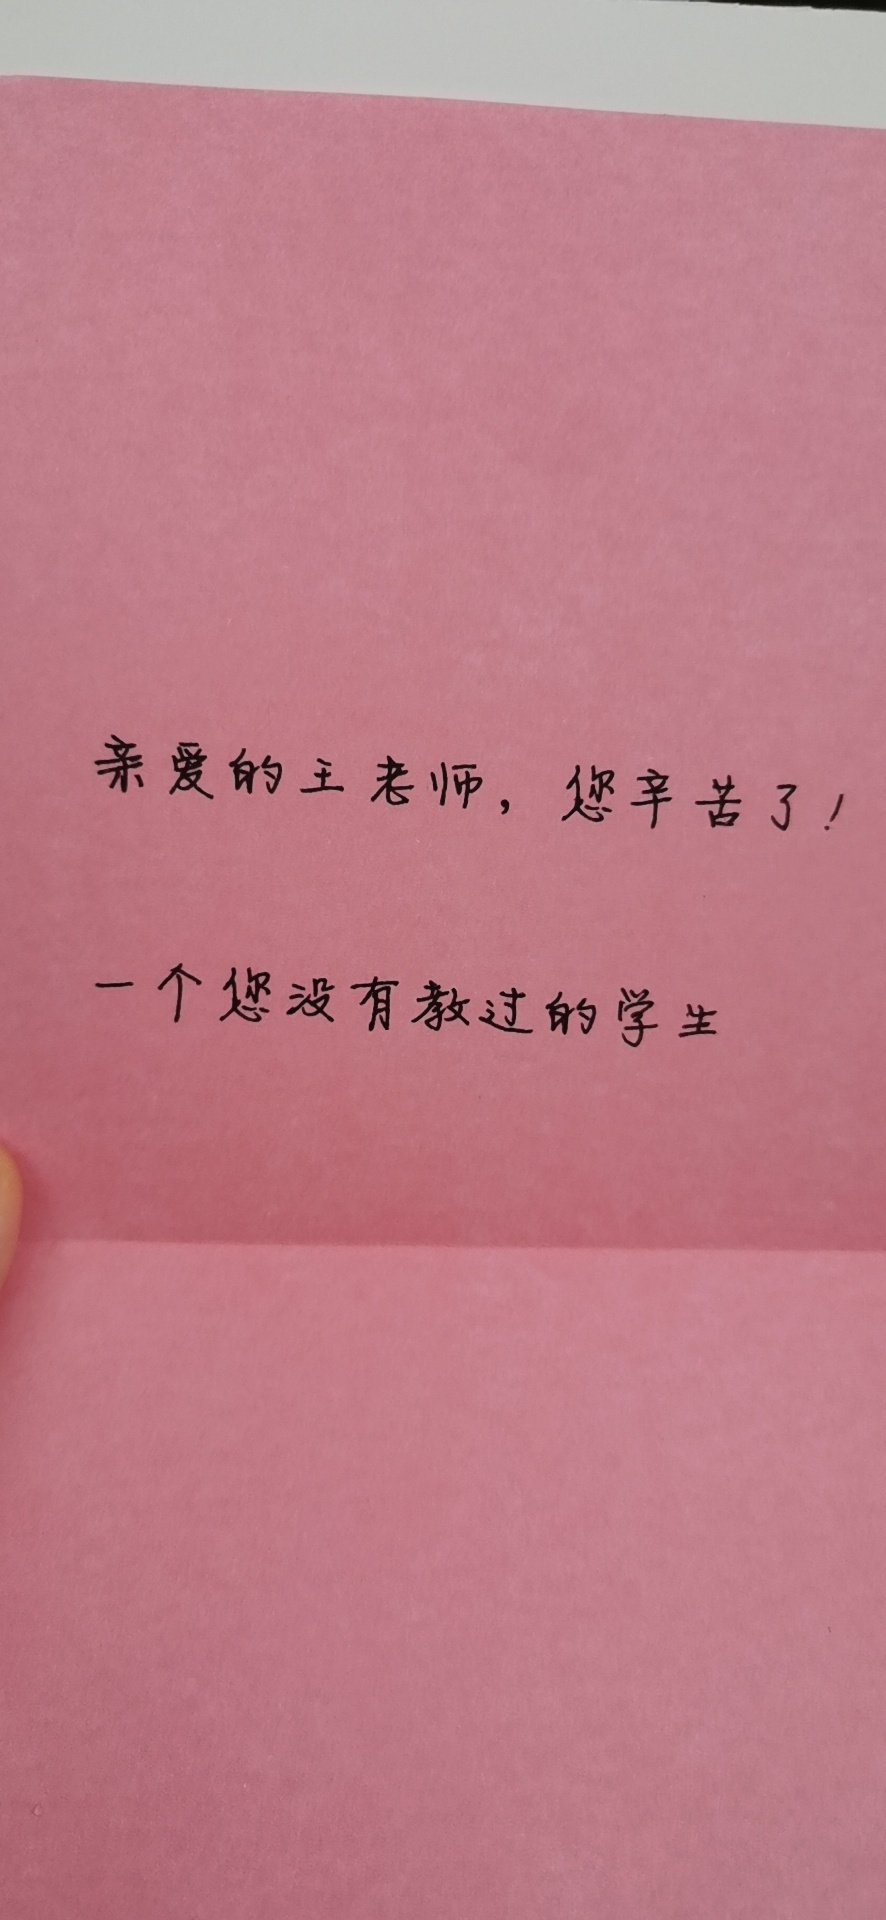 亲爱的王老师，您辛苦了！
一个您没有教过的学生